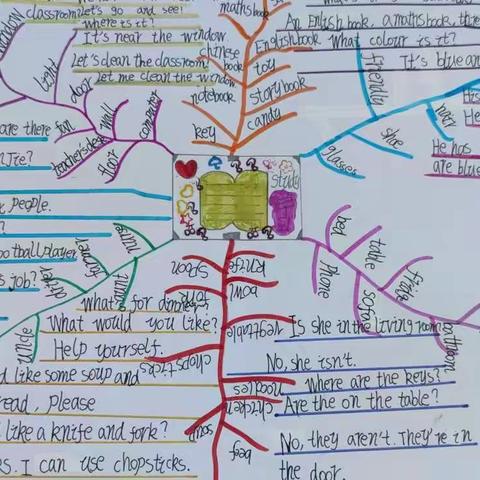 classroom
Let's go and see!
where is it?
It's near the window.
Let's clean the classroom
Let me clean the window
door
wall
computer
fan
teacher's desk
floor
are there
people.
football player
job?
nurse
driver
uncle
mathsbook
chinese book
notebook
key
English book
toy
storybook
candy
An English book, a maths book, thre
What colour is it?
It's blue an
friendly
shoe
glasses
His
He
He has
are blue
Study
bed
table
phone
sofa
fridge
What's for dinner?
What would you like?
Help yourself.
d like some soup and
read, please
like a knife and fork?
es. I can use chopsticks.
spoon
knife
fork
bowl
vegetable
chopsticks
noodles
chicken
soup
beef
Is she in the living room?
No, she isn't.
Where are the keys?
Are the on the table?
No, they aren't. They're in
the door.